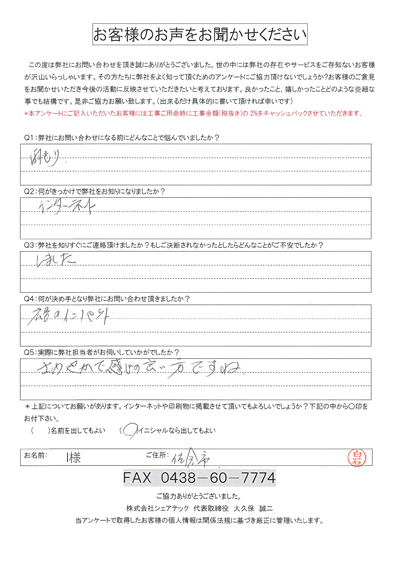 お客様のお声をお聞かせください
この度は弊社にお問い合わせを頂き誠にありがとうございました。世の中には弊社の存在やサービスをご存知ないお客様
が沢山いらっしゃいます。その方たちに弊社をよく知って頂くためのアンケートにご協力頂けないでしょうか?お客様のご意見
をお聞かせいただき今後の活動に反映させていただきたいと考えております。良かったこと、嬉しかったことどのような些細な
事でも結構です。是非ご協力お願い致します。(出来るだけ具体的に書いて頂ければ幸いです)
*本アンケートにご記入いただいたお客様には工事ご用命時に工事金額(税抜き)の 2%をキャッシュバックさせていただきます。
Q1:弊社にお問い合わせになる前にどんなことで悩んでいましたか?
雨もり.
Q2:何がきっかけで弊社をお知りになりましたか?
インターネット
Q3:弊社を知りすぐにご連絡頂けましたか?もしご決断されなかったとしたらどんなことがご不安でしたか?
しました
Q4:何が決め手となり弊社にお問い合わせ頂きましたか?
Q5:実際に弊社担当者がお伺いしていかがでしたか?
さわやかで感じの良い方ですね.
*上記についてお願いがあります。インターネットや印刷物に掲載させて頂いてもよろしいでしょうか?下記の中から〇印を
お付下さい。
( )名前を出してもよい (〇)イニシャルなら出してもよい
お名前: I様 ご住所: 佐倉市 白石
FAX 0438-60-7774
ご協力ありがとうございました。
株式会社シェアテック 代表取締役 大久保 誠二
当アンケートで取得したお客様の個人情報は関係法規に基づき厳正に管理いたします。